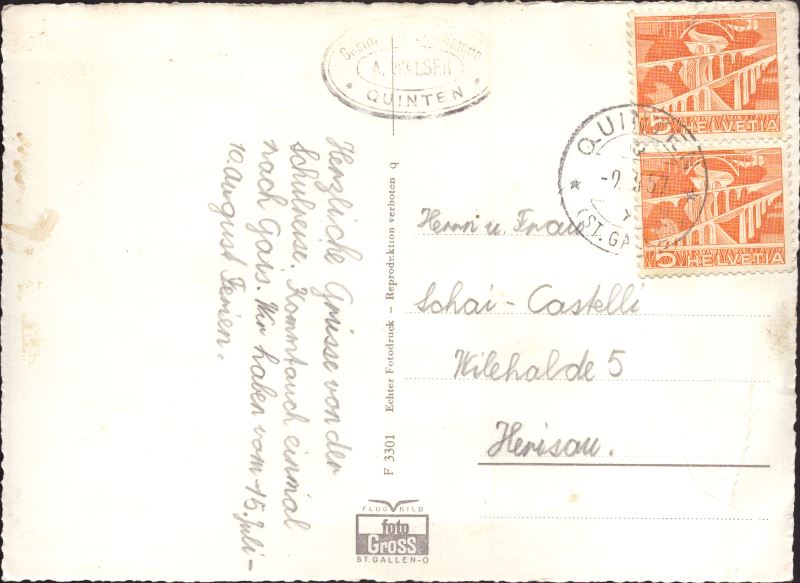 A. WALSER
QUINTEN
5 HELVETIA
QUINTEN
(ST. GALLEN)
5 HELVETIA
Herzliche Grüsse von der
Schulreise. Kommt auch einmal
nach Gais. Wir haben vom 15. Juli-
10. August Ferien.
F 3301 Echter Fotodruck – Reproduktion verboten q
Herrn u. Frau
Schai-Castelli
Wilehalde 5
Herisau.
FLUGBILD
foto
GROSS
ST. GALLEN-O